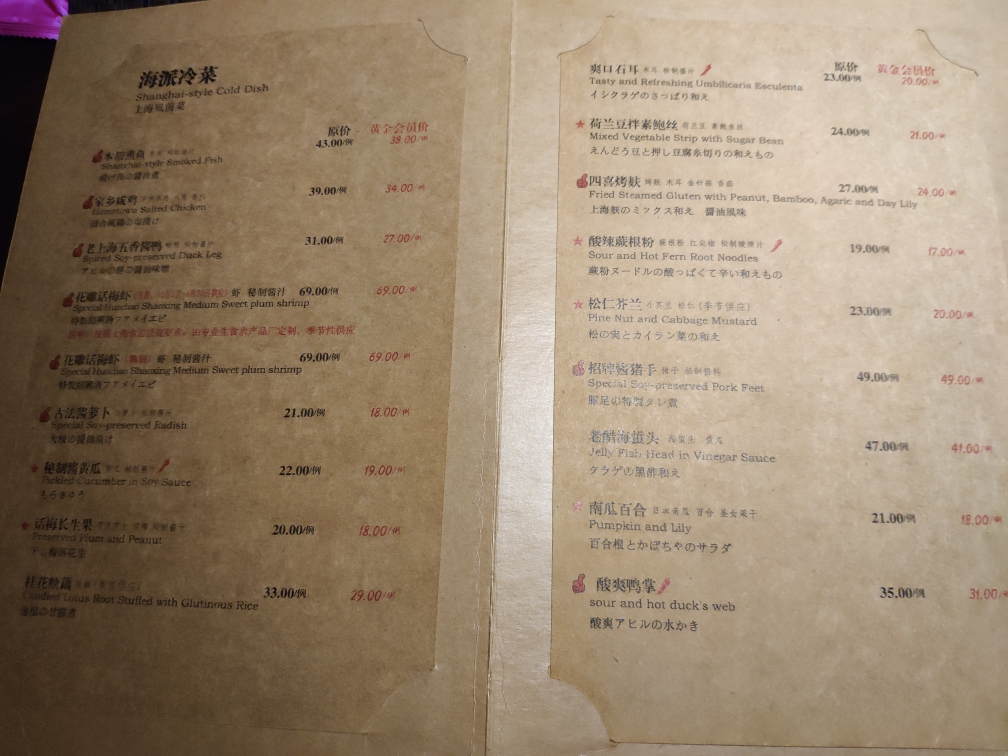 海派冷菜
Shanghai-style Cold Dish
上海風前菜
原价 黄金会员价
本帮熏鱼 43.00/例 38.00/例
Shanghai-style Smoked Fish
揚げ魚の醤油煮
家乡咸鸡 39.00/例 34.00/例
Hometown Salted Chicken
老上海五香酱鸭 31.00/例 27.00/例
Spiced Soy-preserved Duck Leg
花雕话梅虾 虾 秘制酱汁 69.00/例 69.00/例
Special Huadiao Shaoxing Medium Sweet plum shrimp
特製紹興酒フアメイエビ
花雕话梅虾 虾 秘制酱汁 69.00/例 69.00/例
Special Huadiao Shaoxing Medium Sweet plum shrimp
特製紹興酒フアメイエビ
古法酱萝卜 21.00/例 18.00/例
Special Soy-preserved Radish
大根の醤油漬け
秘制酱黄瓜 22.00/例 19.00/例
Pickled Cucumber in Soy Sauce
もろきゅう
话梅长生果 20.00/例 18.00/例
Preserved Plum and Peanut
干し梅落花生
桂花糯藕 33.00/例 29.00/例
Candied Lotus Root Stuffed with Glutinous Rice
蓮根の甘露煮
原价 黄金会员价
爽口石耳 木耳 秘制酱汁 23.00/例 20.00/例
Tasty and Refreshing Umbilicaria Esculenta
イシクラゲのさっぱり和え
荷兰豆拌素鲍丝 荷兰豆 素鲍鱼丝 24.00/例 21.00/例
Mixed Vegetable Strip with Sugar Bean
えんどう豆と押し豆腐糸切りの和えもの
四喜烤麸 烤麸 木耳 金针菇 香菇 27.00/例 24.00/例
Fried Steamed Gluten with Peanut, Bamboo, Agaric and Day Lily
上海麩のミックス和え 醤油風味
酸辣蕨根粉 蕨根粉 红尖椒 秘制酸辣汁 19.00/例 17.00/例
Sour and Hot Fern Root Noodles
蕨粉ヌードルの酸っぱくて辛い和えもの
松仁芥兰 小芥兰 松仁(季节供应) 23.00/例 20.00/例
Pine Nut and Cabbage Mustard
松の実とカイラン菜の和え
招牌酱猪手 猪手 秘制酱料 49.00/例 49.00/例
Special Soy-preserved Pork Feet
豚足の特製タレ煮
老醋海蜇头 海蜇头 黄瓜 47.00/例 41.00/例
Jelly Fish Head in Vinegar Sauce
クラゲの黒酢和え
南瓜百合 日本南瓜 百合 圣女果干 21.00/例 18.00/例
Pumpkin and Lily
百合根とかぼちゃのサラダ
酸爽鸭掌 35.00/例 31.00/例
sour and hot duck's web
酸爽アヒルの水かき